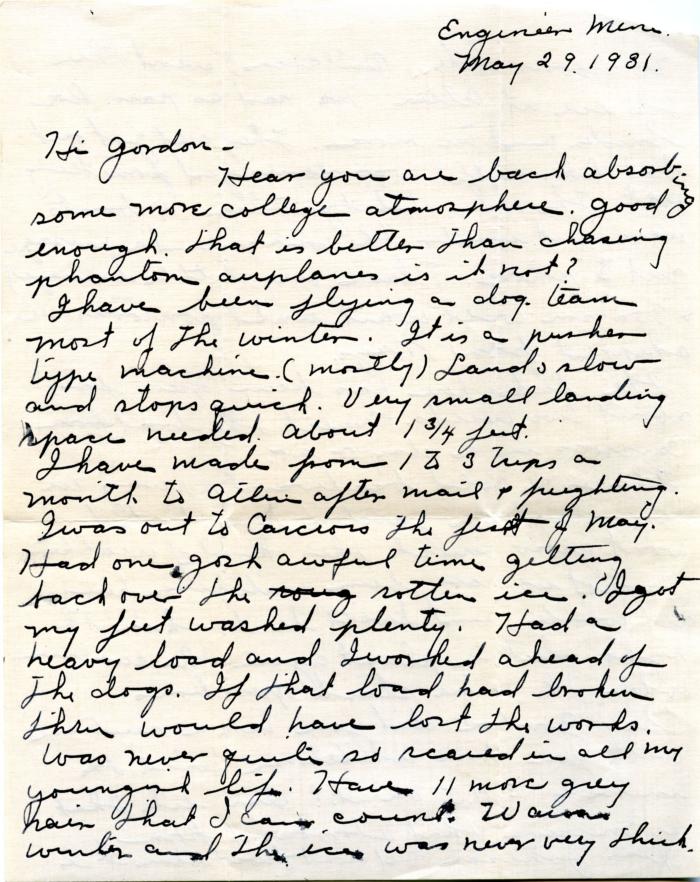 Engineer Mine.
May 29. 1931.
Hi Gordon -
Hear you are back absorbing
some more college atmosphere. Good
enough. That is better than chasing
phantom airplanes is it not?
I have been flying a dog team
most of the winter. It is a pusher
type machine. (mostly) Lands slow
and stops quick. Very small landing
space needed. about 1 3/4 feet.
I have made from 1 to 3 trips a
month to Atlin after mail & freighting.
I was out to Carcross the first of May.
Had one gosh awful time getting
back over the roug rotten ice. I got
my feet washed plenty. Had a
heavy load and I worked ahead of
the dogs. If that load had broken
thru would have lost the works.
Was never quite so scared in all my
youngish life. Have 11 more grey
hair that I can count. Warm
winter and the ice was never very thick.